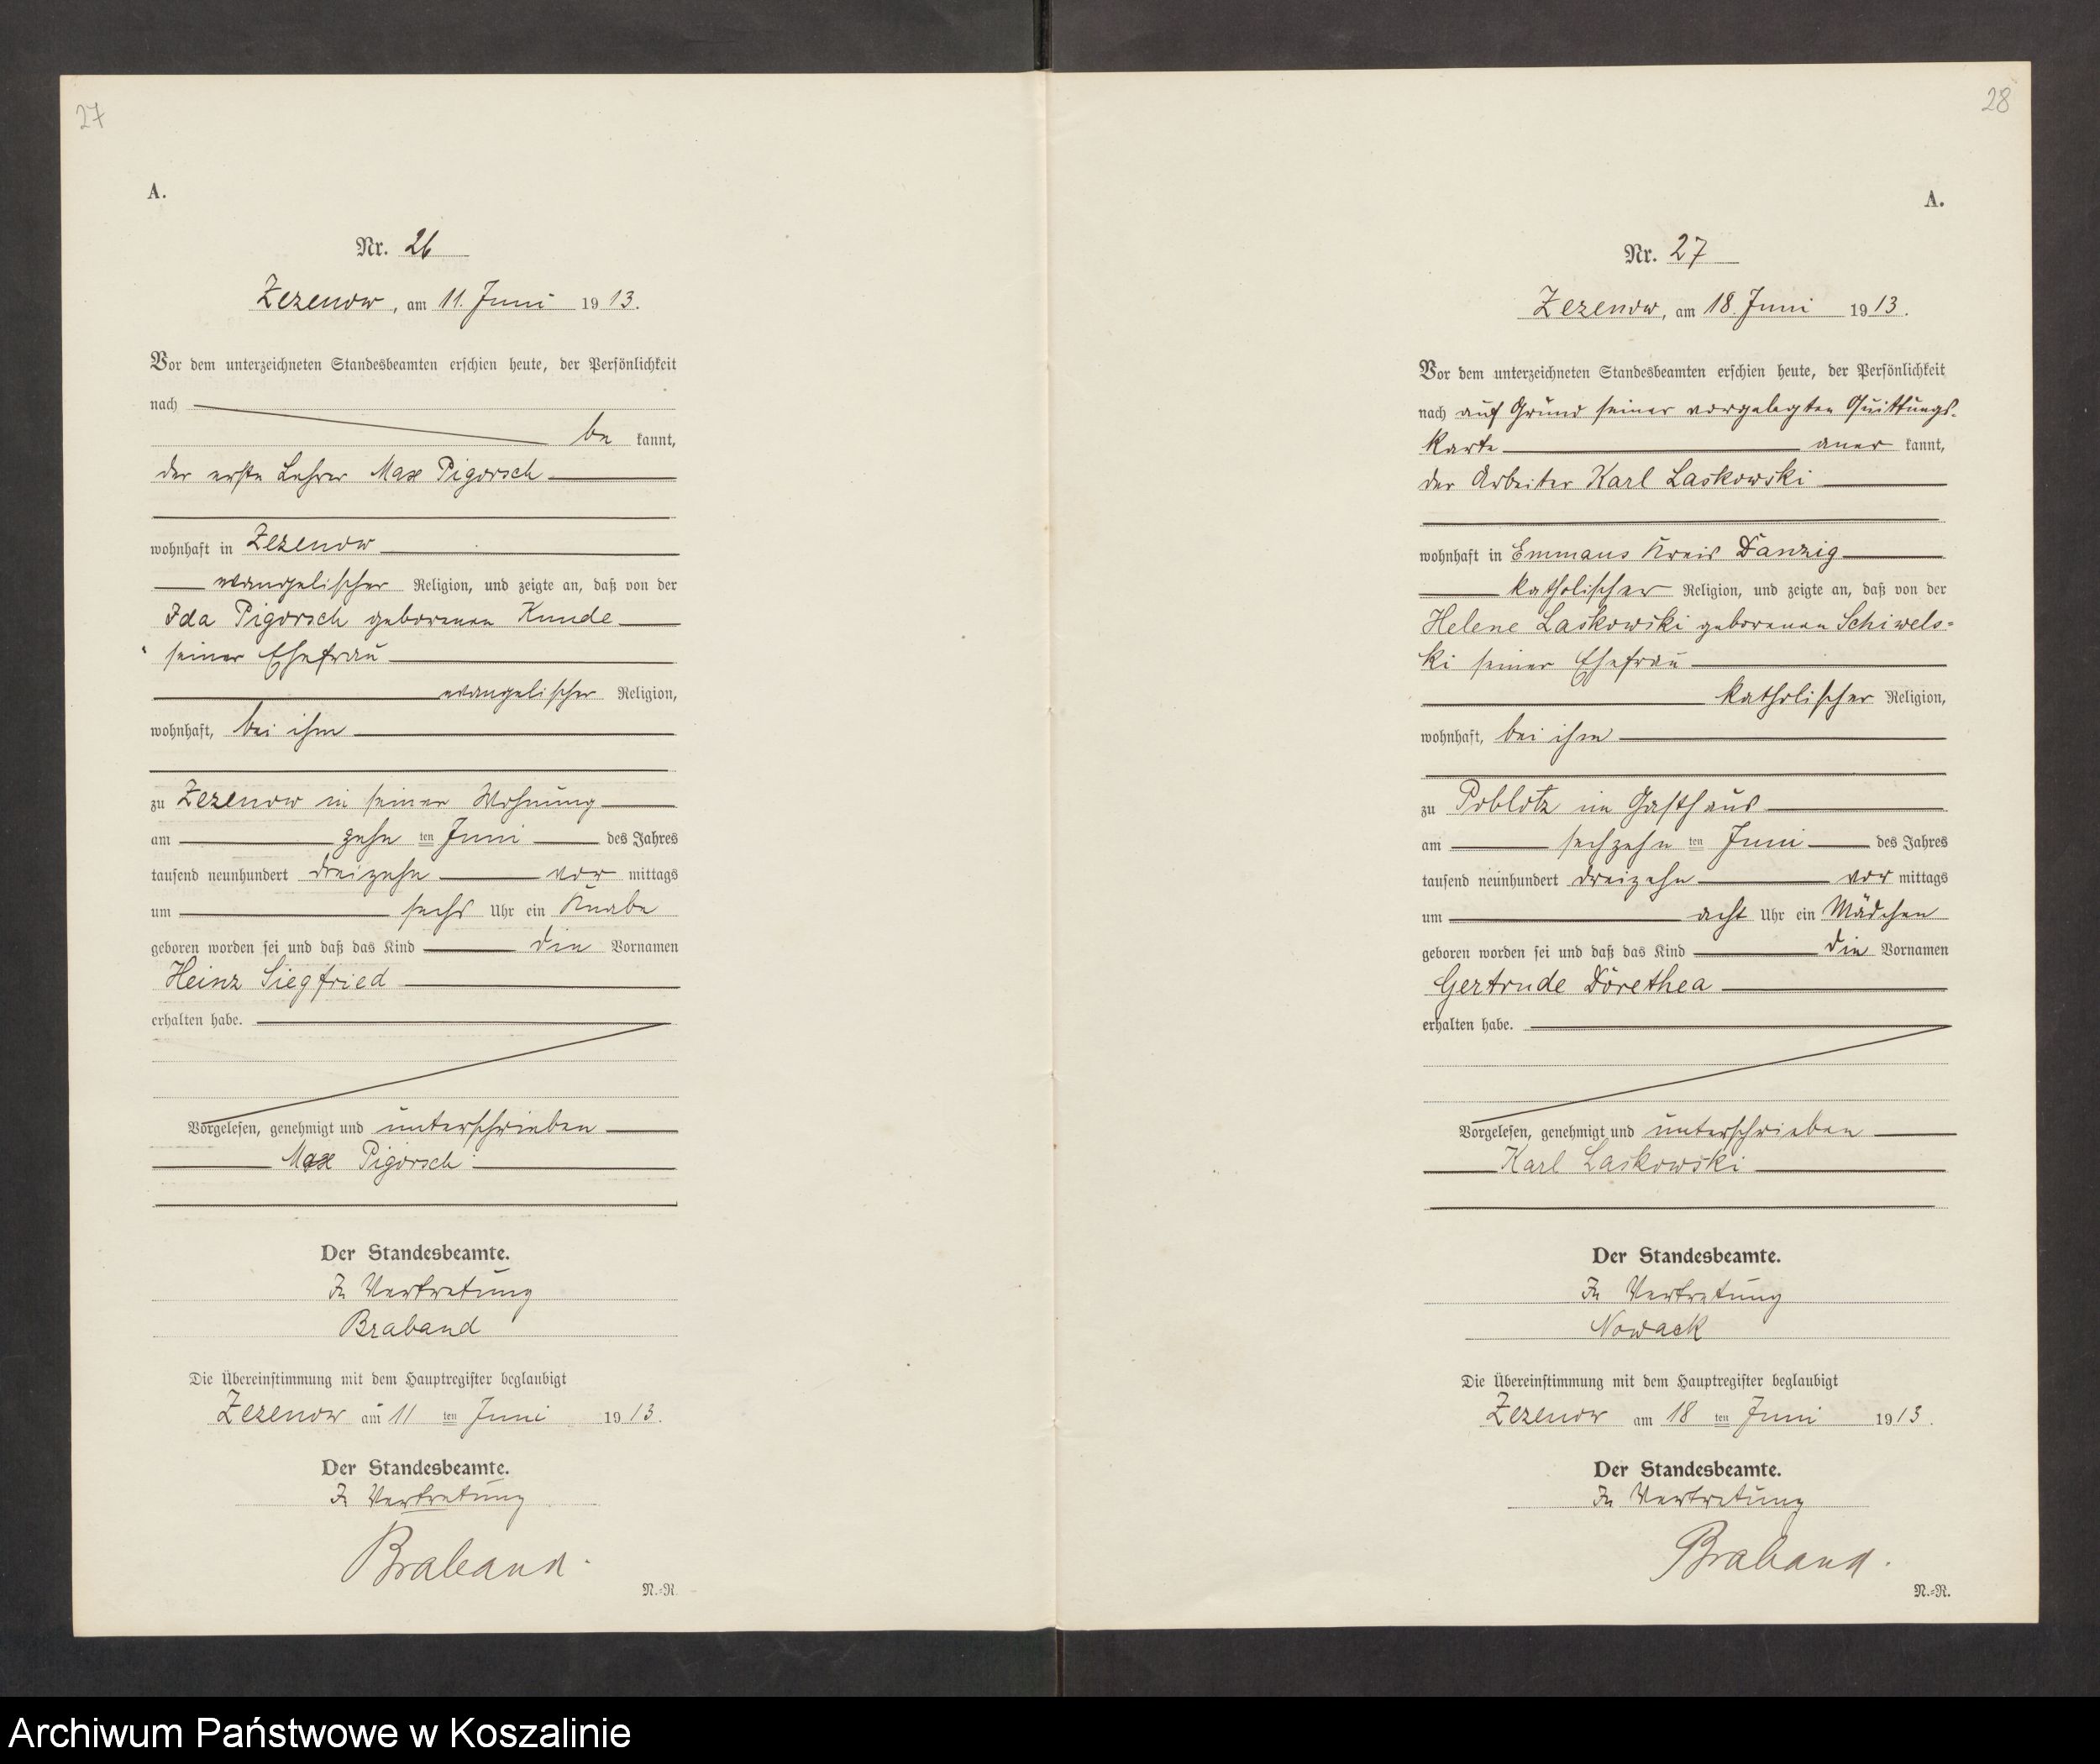 27
A.
Nr. 26
Zezenow, am 11. Juni 1913.
Vor dem unterzeichneten Standesbeamten erschien heute, der Persönlichkeit
nach
be kannt,
der erste Lehrer Max Pigorsch
wohnhaft in Zezenow
evangelischer Religion, und zeigte an, daß von der
Ida Pigorsch geborenen Kunde
seiner Ehefrau
evangelischer Religion,
wohnhaft, bei ihm
zu Zezenow in seiner Wohnung
am zehn ten Juni des Jahres
tausend neunhundert dreizehn vor mittags
um sechs Uhr ein Knabe
geboren worden sei und daß das Kind die Vornamen
Heinz Siegfried
erhalten habe.
Vorgelesen, genehmigt und unterschrieben
Max Pigorsch
Der Standesbeamte.
In Vertretung
Braband
Die Übereinstimmung mit dem Hauptregister beglaubigt
Zezenow am 11 ten Juni 1913.
Der Standesbeamte.
In Vertretung
Braband.
N.=R.
28
A.
Nr. 27
Zezenow, am 18. Juni 1913.
Vor dem unterzeichneten Standesbeamten erschien heute, der Persönlichkeit
nach auf Grund seiner vorgelegten Quittungs-
karte aner kannt,
der Arbeiter Karl Laskowski
wohnhaft in Emmaus Kreis Danzig
katholischer Religion, und zeigte an, daß von der
Helene Laskowski geborenen Schiwels=
ki seiner Ehefrau
katholischer Religion,
wohnhaft, bei ihm
zu Poblotz im Gasthaus
am sechzehn ten Juni des Jahres
tausend neunhundert dreizehn vor mittags
um acht Uhr ein Mädchen
geboren worden sei und daß das Kind die Vornamen
Gertrude Dorethea
erhalten habe.
Vorgelesen, genehmigt und unterschrieben
Karl Laskowski
Der Standesbeamte.
In Vertretung
Nowack
Die Übereinstimmung mit dem Hauptregister beglaubigt
Zezenow am 18 ten Juni 1913.
Der Standesbeamte.
In Vertretung
Braband.
N.=R.
Archiwum Państwowe w Koszalinie